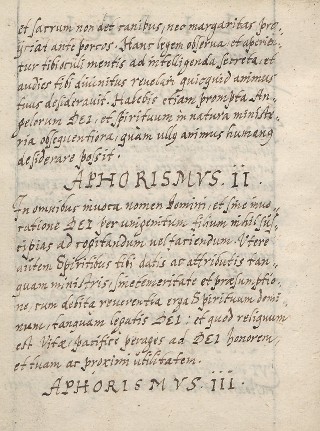 et sacrum non det canibus, nec margaritas pro
ijciat ante porcos. Hanc legem observa, et aperien
tur tibi oculi mentis ad intelligenda secreta, et
audies tibi divinitus revelari quicquid animus
tuus desideravit. Habebis etiam promptos An,
gelorum DEI, et spirituum in natura ministe,
ria obsequentiora, quam ullus animus humanus
desiderare possit.
APHORISMVS. II.
In omnibus invoca nomen Domini, et sine invo
catione DEI per unigenitum filium nihil sus,
cipias ad cogitandum vel faciendum. Utere
autem Spiritibus tibi datis ac attributis tan,
quam ministris, sine temeritate et præsumptio
ne, cum debita reverentia erga Spirituum domi
num, tanquam legatis DEI: et quod reliquum
est vitæ, pacifice perages ad DEI honorem,
et tuam ac proximi utilitatem.
APHORISMVS. III.